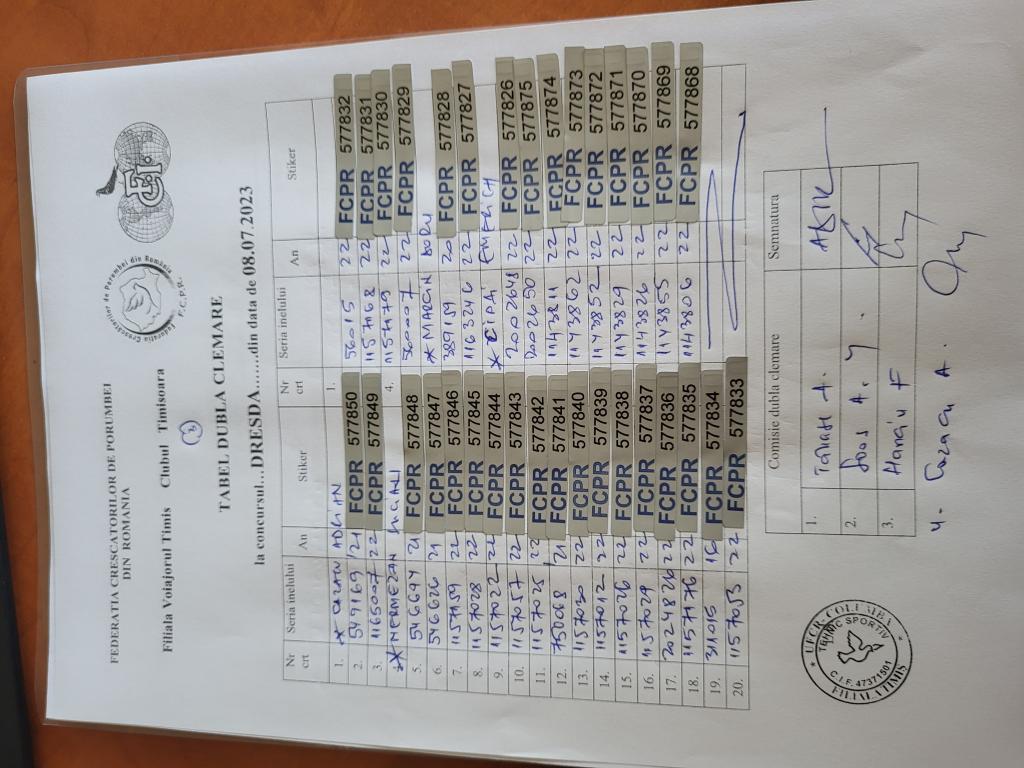 FEDERATIA CRESCATORILOR DE PORUMBEI
DIN ROMANIA
Filiala Voiajorul Timis Clubul Timisoara
Federatia Crescatorilor de Porumbei din România
F.C.P.R.
TABEL DUBLA CLEMARE
la concursul...DRESDA.......din data de 08.07.2023
Nr crt Seria inelului An Stiker
1. * CAZACU ADRIAN
2. 549169 21 FCPR 577850
3. 1165007 22 FCPR 577849
* NEMEZAN MIHAI
5. 546644 21 FCPR 577848
6. 546626 21 FCPR 577847
7. 1157159 22 FCPR 577846
8. 1157028 22 FCPR 577845
9. 1157022 22 FCPR 577844
10. 1157057 22 FCPR 577843
11. 1157025 22 FCPR 577842
12. 750068 21 FCPR 577841
13. 1157030 22 FCPR 577840
14. 1157012 22 FCPR 577839
15. 1157026 22 FCPR 577838
16. 1157029 22 FCPR 577837
17. 2024826 22 FCPR 577836
18. 1157176 22 FCPR 577835
19. 31015 16 FCPR 577834
20. 1157053 22 FCPR 577833
Nr crt Seria inelului An Stiker
1. 56015 22 FCPR 577832
1157168 22 FCPR 577831
1157179 22 FCPR 577830
4. 560007 22 FCPR 577829
* MARGIN DORU
389159 20 FCPR 577828
1163246 22 FCPR 577827
* CIPAI EMERICH
2002648 22 FCPR 577826
2002650 22 FCPR 577875
1143811 22 FCPR 577874
1143862 22 FCPR 577873
1143852 22 FCPR 577872
1143829 22 FCPR 577871
1143826 22 FCPR 577870
1143855 22 FCPR 577869
1143806 22 FCPR 577868
Comisie dubla clemare Semnatura
1. A.
2. A.
3. F
4. Cazacu A.
UFCR COLUMBA
TEHNIC SPORTIV
C.I.F. 47371501
FILIALA TIMIS